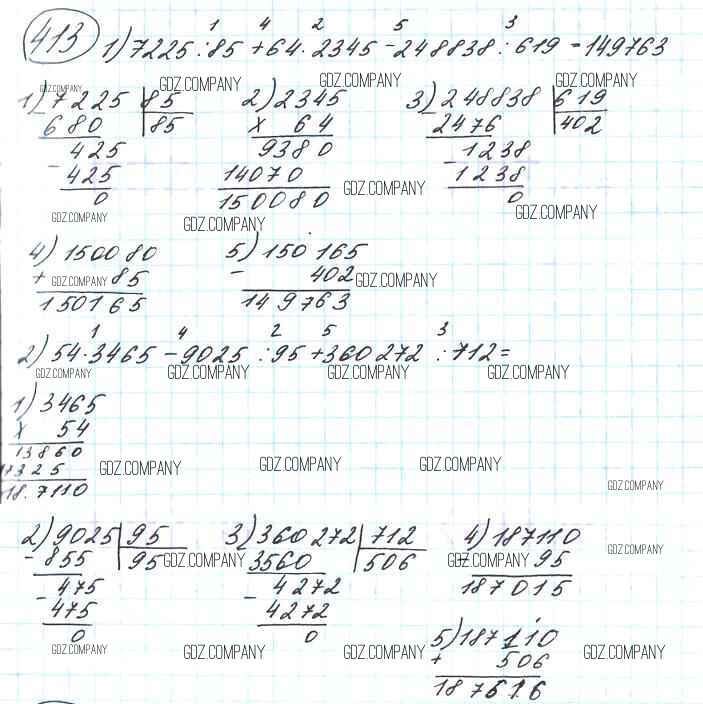 413 1) 7225 : 85 + 64 · 2345 - 248838 : 619 = 149763
1 4 2 5 3
GDZ.COMPANY GDZ.COMPANY GDZ.COMPANY GDZ.COMPANY
1) 7225 85
- 680 85
425
- 425
0
2) 2345
x 64
9380
14070
150080
3) 248838 619
- 2476 402
1238
- 1238
0
GDZ.COMPANY
GDZ.COMPANY GDZ.COMPANY GDZ.COMPANY
4) 150080
+ 85
150165
GDZ.COMPANY
5) 150165
- 402
149763
GDZ.COMPANY
1 4 2 5 3
2) 54 · 3465 - 9025 : 95 + 360272 : 712 =
GDZ.COMPANY GDZ.COMPANY GDZ.COMPANY GDZ.COMPANY
1) 3465
x 54
13860
17325
187110
GDZ.COMPANY GDZ.COMPANY GDZ.COMPANY
GDZ.COMPANY
2) 9025 95
- 855 95
475
- 475
0
GDZ.COMPANY
3) 360272 712
3560 506
- 4272
4272
0
4) 187110
- 95
187015
GDZ.COMPANY GDZ.COMPANY
GDZ.COMPANY
5) 187110
+ 506
187616
GDZ.COMPANY GDZ.COMPANY GDZ.COMPANY GDZ.COMPANY